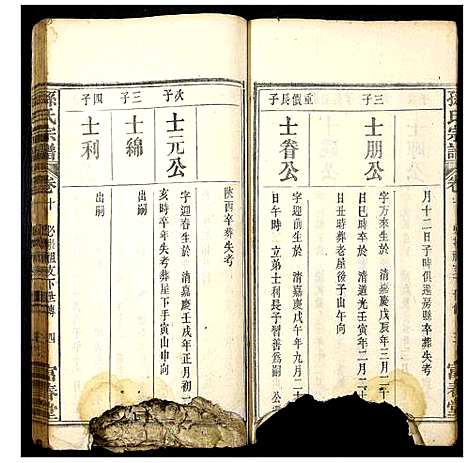 孫氏宗譜
卷十
富春堂
月十二日子時俱遷房縣卒葬失考
三子
士朋公
字方來生於 清嘉慶戊辰年三月二
日巳時卒於 清道光壬寅年二月二
日丑時葬老屋後子山午向
重儥長子
士眷公
字迎前生於 清嘉慶戊午年九月二
日午時 立弟士利長子習善爲嗣 公
陝西卒葬失考
次子
士元公
字迎春生於 清嘉慶壬戌年正月初二
亥時卒年失考葬屋下手寅山申向
三子
士綿
出嗣
四子
士利
出嗣
孫氏宗譜
卷十
四
富春堂